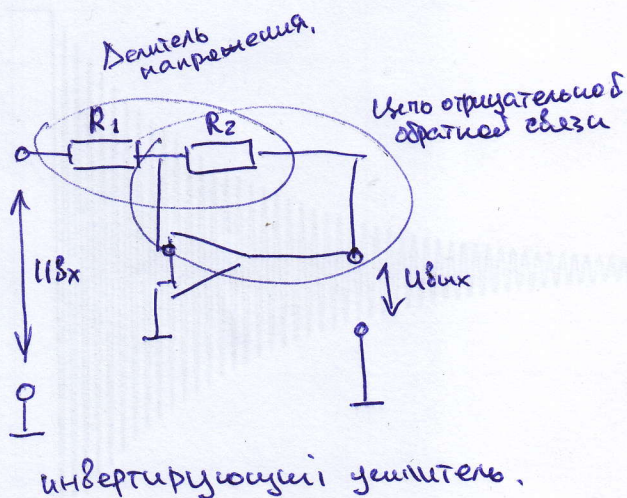 Делитель
напряжения,
Цепь отрицательной
обратной связи
R1
R2
Uвх
Uвых
инвертирующий усилитель.